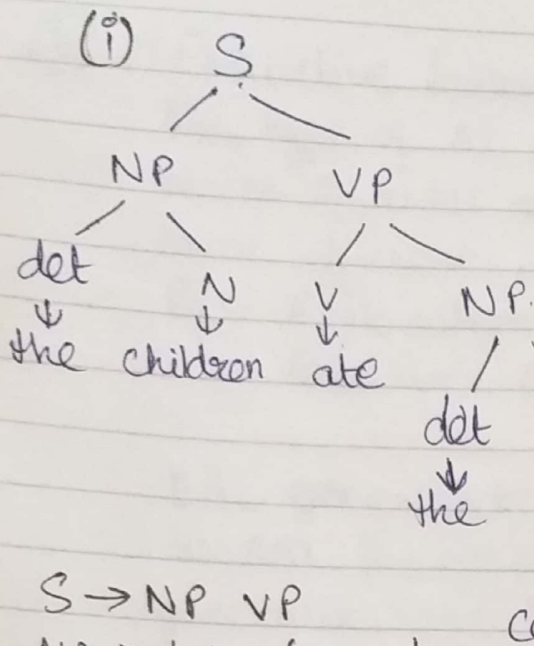 (i) S
NP VP
det N V NP
the children ate
det
the
S → NP VP